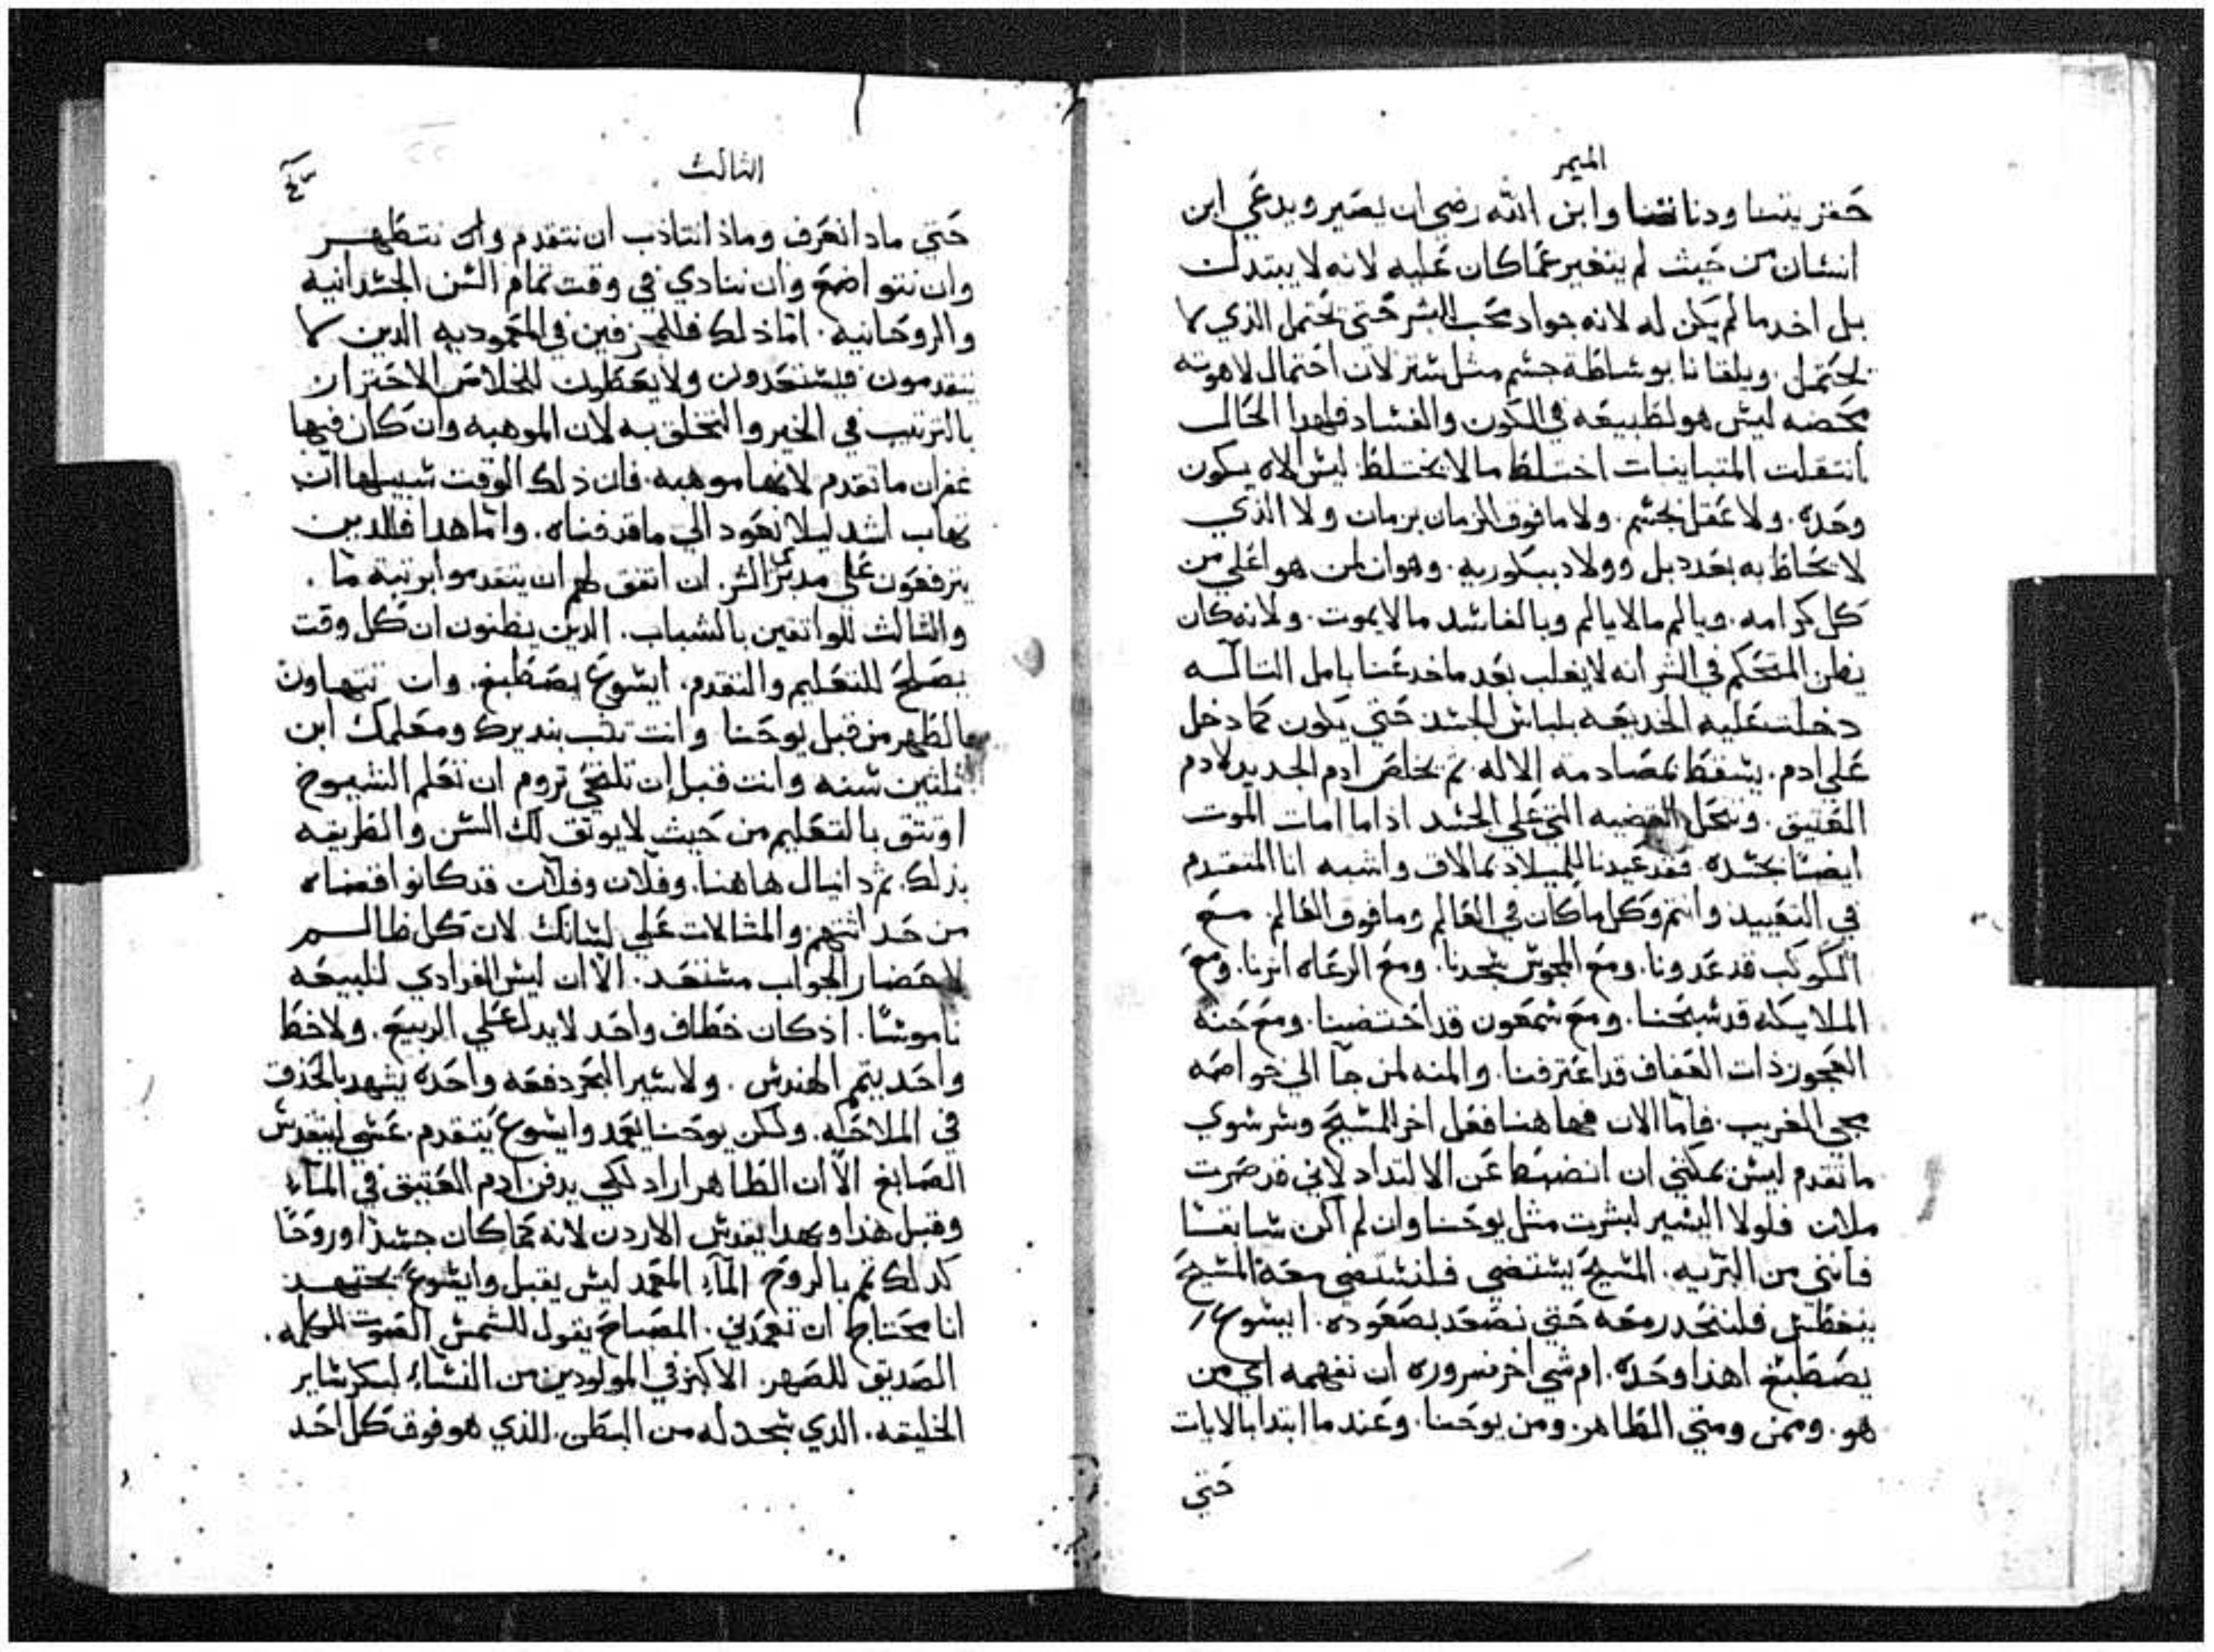 الميمر
حقريتنا ودناتنا وابن الله رضي ان يصير ويدعي ابن
انسان من حيث لم يتغير عما كان عليه لانه لا يبتدل
بل اخد ما لم يكن له لانه جواد محب البشر حتي يحتمل الذي لا
يحتمل. ويلقانا بوساطة جسم مثل ستر لان احتمال لاهوته
محضه ليس هو لطبيعه في الكون والفساد فلهدا الحال
انتقلت المتباينات اختلط ما لا يختلط ليس الاه يكون
وحده. ولا عقل بجسم. ولا ما فوق الزمان بزمان ولا الذي
لا يحاط به بحد دبل وولاد ببكوريه. وهوان لمن هو اعلي من
كل كرامه. ويالم ما لا يالم وبالفاسد ما لا يموت. ولانه كان
يظن المتحكم في الشر انه لا يغلب بعد ما خدعنا بامل التاله
دخلت عليه الخديعه بلباس الجسد حتي يكون كما دخل
علي ادم. يسقط بمصادمة الاله ثم يخلص ادم الجديد لادم
العتيق. وتنحل القضيه التي علي الجسد اذا ما امات الموت
ايضًا بجسده. فقد عيدنا للميلاد بما لاق واشبه انا المتقدم
في التعييد وانتم وكل ما كان في العالم وما فوق العالم. مع
الكوكب قد عدونا. ومع المجوس سجدنا. ومع الرعاه انرنا. ومع
الملايكه قد سبحنا. ومع سمعون قد احتضنا. ومع حنه
العجوز ذات العفاف قد اعترفنا. والمنه لمن جآ الي خواصه
مجي الغريب. فاما الان فهاهنا فعل اخر للمسيح وسر سوي
ما تقدم ليس يمكني ان انضبط عن الالتداد لاني قد صرت
ملان فلولا اليسير لبشرت مثل يوحنا وان لم اكن سابقًا
فانني من البريه. المسيح يستضي فلنستضي معه المسيح
ينغطس فلننحدر معه حتي نصعد بصعوده. ايسوع
يصطبغ اهدا وحده. ام شي اخر نسروره ان نفهمه اي من
هو. وممن ومتي الطاهر. ومن يوحنا. وعند ما ابتدا بالايات
حتي
الثالث
حتي مادا نعرف وماذا نتاذب ان نتقدم وان نتطهر
وان نتواضع وان ننادي في وقت تمام السن الجسدانيه
والروحانيه. اما ذلك فللمجزفين في المعموديه الدين لا
يتقدمون فيستعدون ولا يعطون للخلاص الاحتران
بالترتيب في الخير والتخلق به لان الموهبه وان كان فيها
غفران ما تقدم لانها موهبه. فان ذلك الوقت سبيلها ان
نهاب اشد ليلا نعود الي ما قد فناه. واما هدا فللدين
يترفعون علي مدبري السر. ان اتفق لهم ان يتقدموا برتبة ما.
والثالث للواتقين بالشباب. الدين يظنون ان كل وقت
يصلح للتعليم والتقدم. ايسوع يصطبغ. وانت تتهاون
بالطهر من قبل يوحنا وانت تحب بنديرك ومعلمك ابن
ثلثين سنه وانت قبل ان تلتحي تروم ان تعلم الشيوخ
اوتتق بالتعليم من حيث لا يوتق لك السن والطريقه
بذلك. ثم دانيال هاهنا. وفلان وفلان قد كانوا قضاه
من حداثتهم. والمثالات علي لسانك لان كل ظالم
لاحضار الجواب مستعد. الا ان ليس الفرادي للبيعه
ناموسًا. اذ كان خطاف واحد لا يدل علي الربيع. ولا خط
واحد يتم الهندس. ولا سير البحر دفعه واحده يشهد بالحذق
في الملاحه. ولكن يوحنا يعمد وايسوع يتقدم. عسي ليقدس
الصابغ الا ان الظاهر اراد لكي يدفن ادم العتيق في المآء
وقبل هذا وبهدا يقدس الاردن لانه كما كان جسدًا وروحًا
كدلك تم بالروح المآء المعمد ليس يقبل وايسوع يجتهد
انا محتاج ان تعمدني. المصباح يقول للشمس الصوت للكلمه.
الصديق للصهر. الاكبر في المولودين من النسآء لبكر ساير
الخليقه. الدي سجد له من البطن. للذي هو فوق كل احد